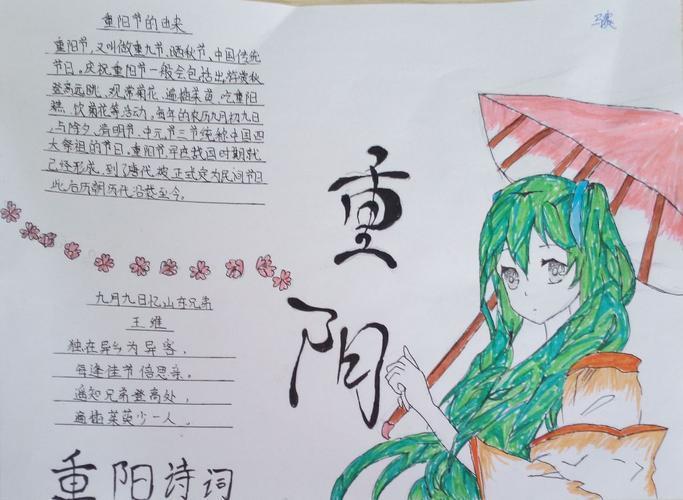 重阳节的由来
重阳节,又叫做重九节、晒秋节、中国传统
节日。庆祝重阳节一般会包括出游赏秋
登高远眺、观赏菊花、遍插茱萸、吃重阳
糕、饮菊花等活动,每年的农历九月初九日
,与除夕、清明节、中元节三节统称中国四
大祭祖的节日。重阳节早在战国时期就
已经形成,到了唐代被正式定为民间节日
此后历朝历代沿袭至今。
九月九日忆山东兄弟
王维
独在异乡为异客,
每逢佳节倍思亲。
遥知兄弟登高处,
遍插茱萸少一人。
重阳诗词
重
阳